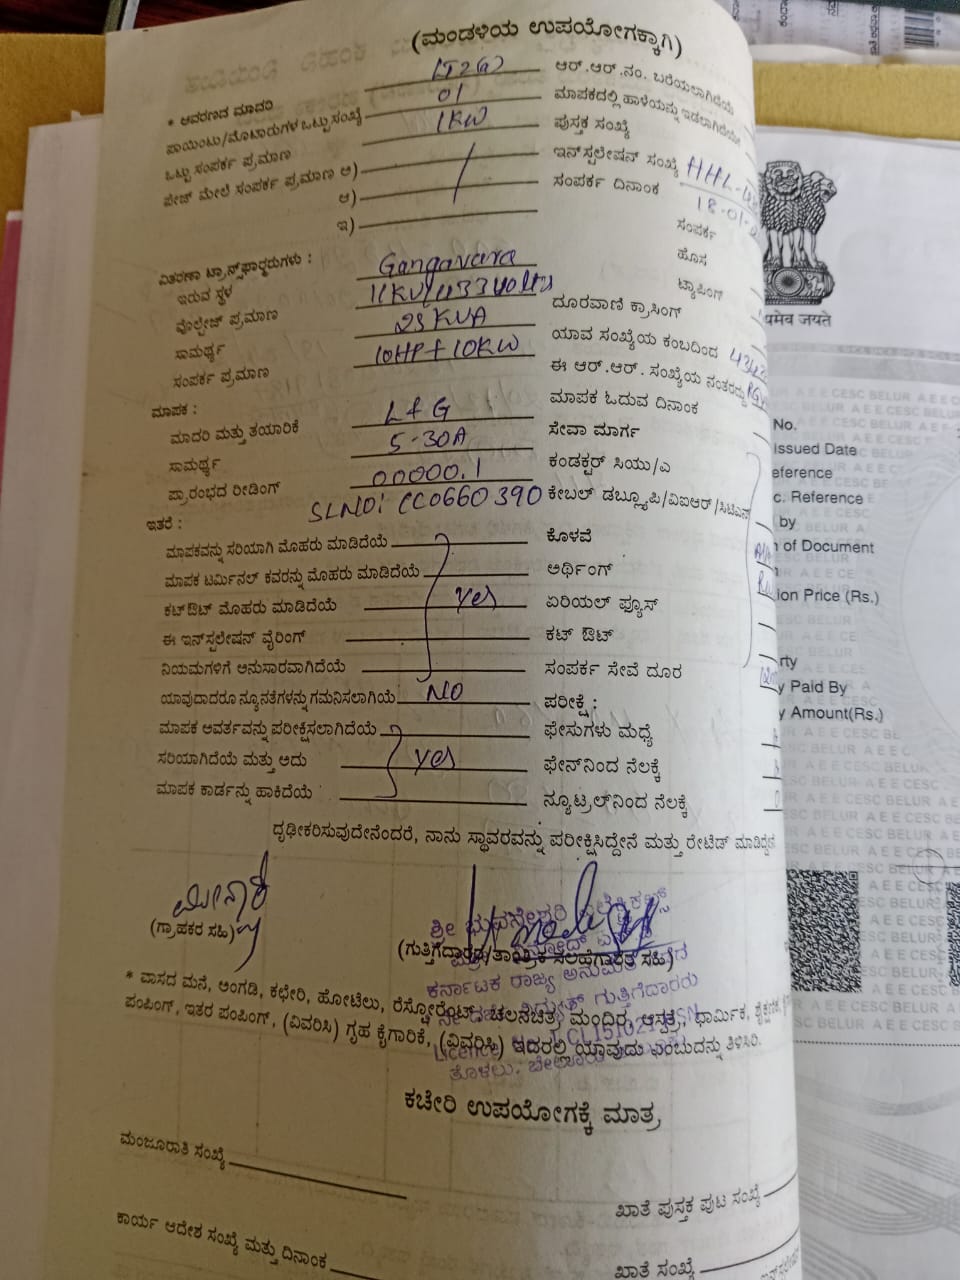 (ಮಂಡಳಿಯ ಉಪಯೋಗಕ್ಕಾಗಿ)
* ಆವರಣದ ಮಾದರಿ LT2(a) ಆರ್.ಆರ್.ನಂ. ಬರೆಯಲಾಗಿದೆಯೆ
ಪಾಯಿಂಟು/ಮೋಟಾರುಗಳ ಒಟ್ಟು ಸಂಖ್ಯೆ 01 ಮಾಪಕದಲ್ಲಿ ಹಾಳೆಯನ್ನು ಇಡಲಾಗಿದೆಯೇ
ಒಟ್ಟು ಸಂಪರ್ಕ ಪ್ರಮಾಣ 1KW ಪುಸ್ತಕ ಸಂಖ್ಯೆ
ಫೇಜ್ ಮೇಲೆ ಸಂಪರ್ಕ ಪ್ರಮಾಣ ಅ) ಇನ್‌ಸ್ಟಲೇಷನ್ ಸಂಖ್ಯೆ HHL-
ಆ) ಸಂಪರ್ಕ ದಿನಾಂಕ 18-01-
ಇ) ಸಂಪರ್ಕ
ಹೊಸ
ವಿತರಣಾ ಟ್ರಾನ್ಸ್‌ಫಾರ್ಮರುಗಳು :
ಇರುವ ಸ್ಥಳ Gangavara ಟ್ಯಾಪಿಂಗ್
ವೊಲ್ಟೇಜ್ ಪ್ರಮಾಣ 11KV/433 Volts ದೂರವಾಣಿ ಕ್ರಾಸಿಂಗ್
ಸಾಮರ್ಥ್ಯ 25 KVA ಯಾವ ಸಂಖ್ಯೆಯ ಕಂಬದಿಂದ
ಸಂಪರ್ಕ ಪ್ರಮಾಣ 10HP + 10KW ಈ ಆರ್.ಆರ್. ಸಂಖ್ಯೆಯ ನಂತರದ್ದು
ಮಾಪಕ : ಮಾಪಕ ಓದುವ ದಿನಾಂಕ
ಮಾದರಿ ಮತ್ತು ತಯಾರಿಕೆ L & G ಸೇವಾ ಮಾರ್ಗ
ಸಾಮರ್ಥ್ಯ 5-30A ಕಂಡಕ್ಟರ್ ಸಿಯು/ಎ
ಪ್ರಾರಂಭದ ರೀಡಿಂಗ್ 00000.1 ಕೇಬಲ್ ಡಬ್ಲ್ಯೂಪಿ/ವಿಐಆರ್/ಸಿಟಿಎಸ್
ಇತರೆ : SLNO: CC0660390
ಮಾಪಕವನ್ನು ಸರಿಯಾಗಿ ಮೊಹರು ಮಾಡಿದೆಯೆ ಕೊಳವೆ
ಮಾಪಕ ಟರ್ಮಿನಲ್ ಕವರನ್ನು ಮೊಹರು ಮಾಡಿದೆಯೆ ಅರ್ಥಿಂಗ್
ಕಟ್‌ಔಟ್ ಮೊಹರು ಮಾಡಿದೆಯೆ Yes ಏರಿಯಲ್ ಫ್ಯೂಸ್
ಈ ಇನ್‌ಸ್ಟಲೇಷನ್ ವೈರಿಂಗ್ ಕಟ್ ಔಟ್
ನಿಯಮಗಳಿಗೆ ಅನುಸಾರವಾಗಿದೆಯೆ ಸಂಪರ್ಕ ಸೇವೆ ದೂರ
ಯಾವುದಾದರೂ ನ್ಯೂನತೆಗಳನ್ನು ಗಮನಿಸಲಾಗಿಯೆ NO ಪರೀಕ್ಷೆ :
ಮಾಪಕ ಆವರ್ತವನ್ನು ಪರೀಕ್ಷಿಸಲಾಗಿದೆಯೆ ಫೇಸುಗಳು ಮಧ್ಯೆ
ಸರಿಯಾಗಿದೆಯೆ ಮತ್ತು ಅದು Yes ಫೇಸ್‌ನಿಂದ ನೆಲಕ್ಕೆ
ಮಾಪಕ ಕಾರ್ಡನ್ನು ಹಾಕಿದೆಯೆ ನ್ಯೂಟ್ರಲ್‌ನಿಂದ ನೆಲಕ್ಕೆ
ದೃಢೀಕರಿಸುವುದೇನೆಂದರೆ, ನಾನು ಸ್ಥಾವರವನ್ನು ಪರೀಕ್ಷಿಸಿದ್ದೇನೆ ಮತ್ತು ರೇಟೆಡ್ ಮಾಡಿದ್ದೇನೆ
(ಗ್ರಾಹಕರ ಸಹಿ) (ಗುತ್ತಿಗೆದಾರರ/ತಾಂತ್ರಿಕ ಸಲಹೆಗಾರರ ಸಹಿ)
ಶ್ರೀ ಭುವನೇಶ್ವರಿ
ಕರ್ನಾಟಕ ರಾಜ್ಯ ಅನುಮತಿ
ವಿದ್ಯುತ್ ಗುತ್ತಿಗೆದಾರರು
Licence
ತೊಳಲು, ಬೇಲೂರು
* ವಾಸದ ಮನೆ, ಅಂಗಡಿ, ಕಛೇರಿ, ಹೋಟೆಲು, ರೆಸ್ಟೋರೆಂಟ್, ಚಲನಚಿತ್ರ, ಮಂದಿರ, ಆಸ್ಪತ್ರೆ, ಧಾರ್ಮಿಕ, ಶೈಕ್ಷಣಿಕ,
ಪಂಪಿಂಗ್, ಇತರ ಪಂಪಿಂಗ್, (ವಿವರಿಸಿ) ಗೃಹ ಕೈಗಾರಿಕೆ, (ವಿವರಿಸಿ) ಇದರಲ್ಲಿ ಯಾವುದು ಎಂಬುದನ್ನು ತಿಳಿಸಿರಿ.
ಕಚೇರಿ ಉಪಯೋಗಕ್ಕೆ ಮಾತ್ರ
ಮಂಜೂರಾತಿ ಸಂಖ್ಯೆ
ಖಾತೆ ಪುಸ್ತಕ ಪುಟ ಸಂಖ್ಯೆ
ಕಾರ್ಯ ಆದೇಶ ಸಂಖ್ಯೆ ಮತ್ತು ದಿನಾಂಕ
ಖಾತೆ ಸಂಖ್ಯೆ
यमेव जयते
No.
Issued Date
eference
c. Reference
by
of Document
ion Price (Rs.)
rty
y Paid By
y Amount(Rs.)
A E E CESC BELUR A E E C